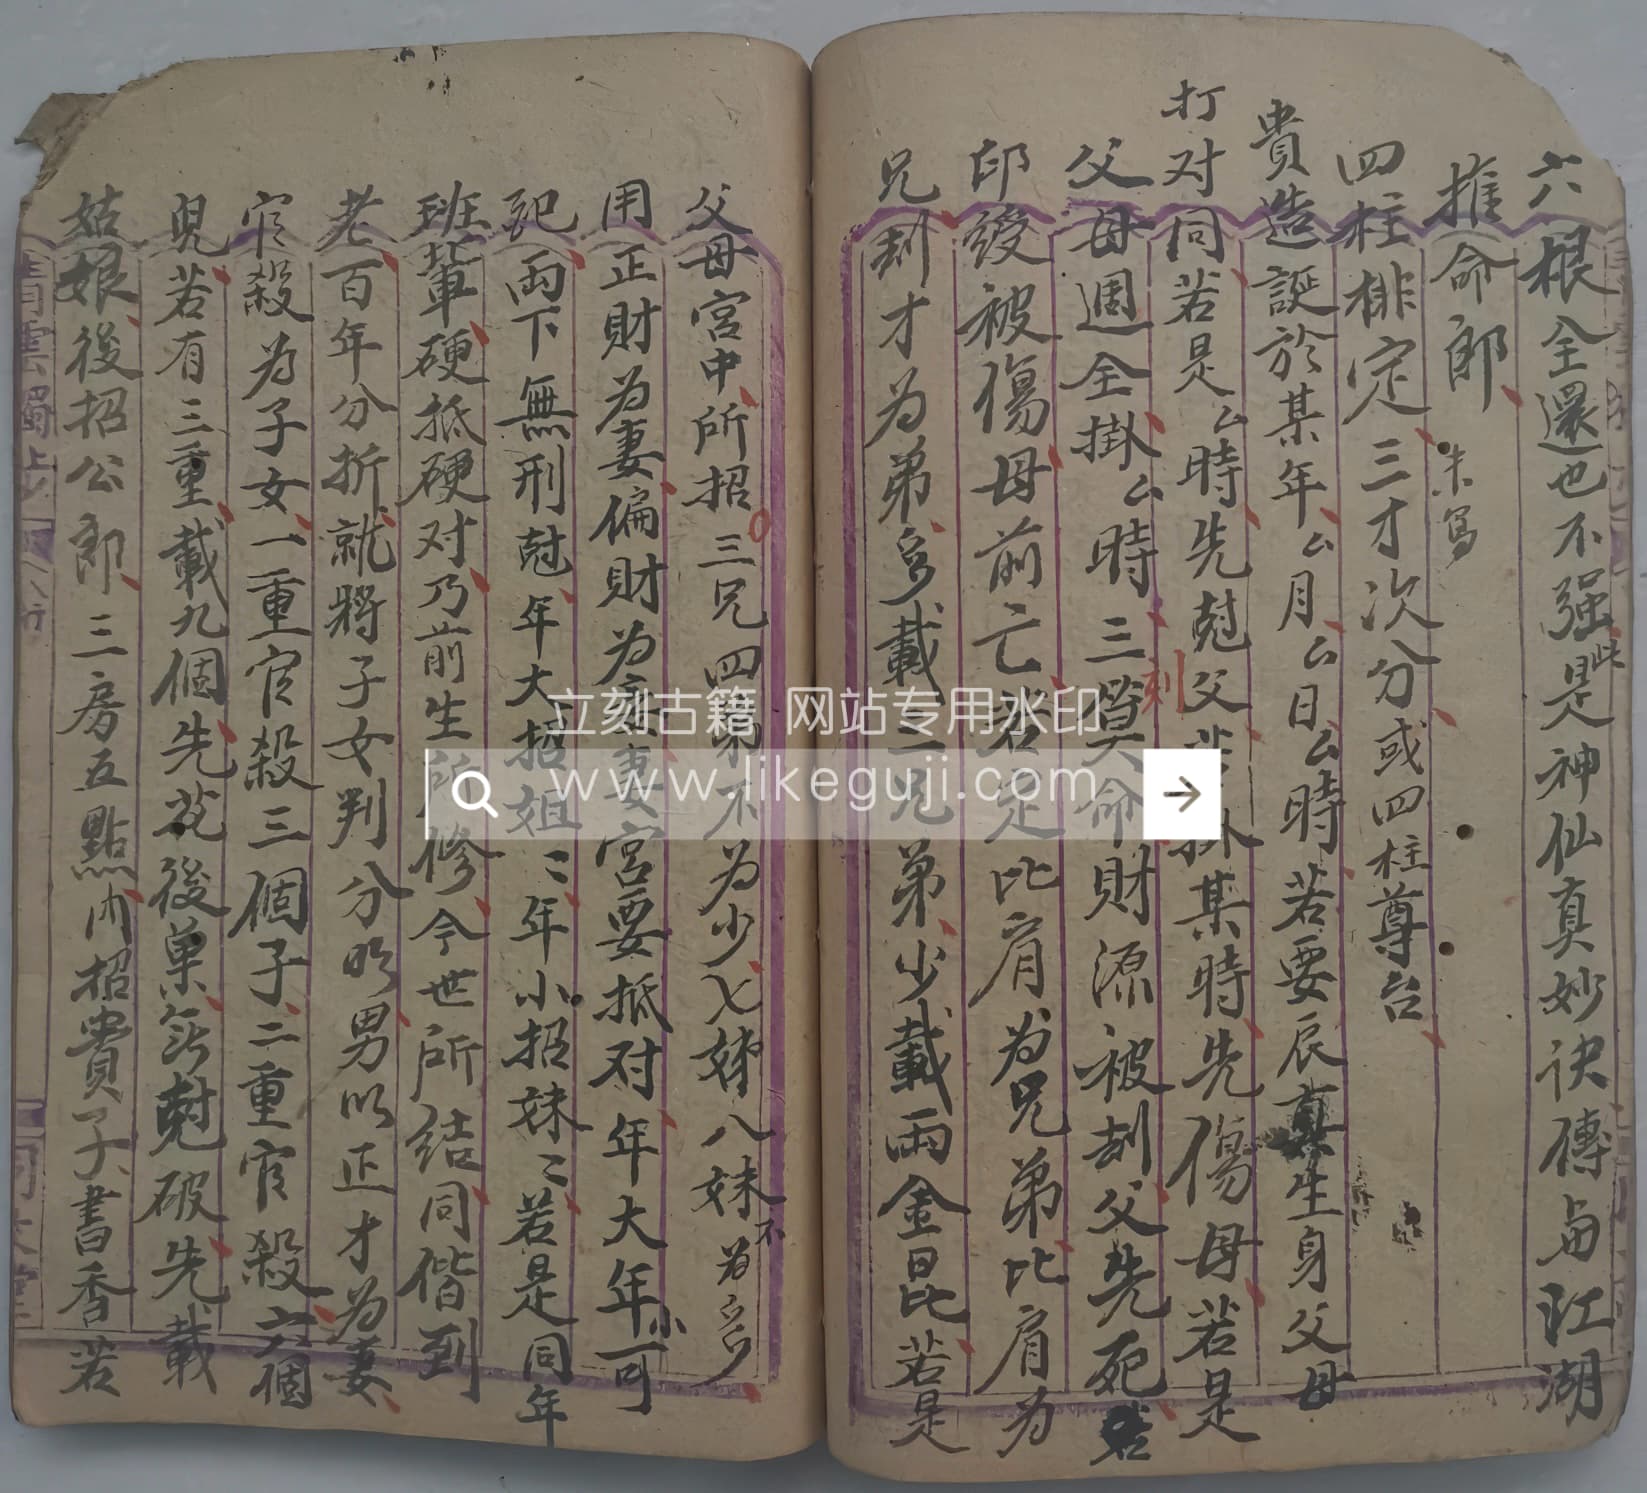 六根全還也不强此是神仙真妙訣傳与江湖
推命郎
未寫
四柱排定三才次分或四柱尊台
貴造誕於某年厶月厶日厶時若要辰真生身父母
打对同若是厶時先尅父若掛某時先傷母若是
父母週全掛厶時三刻算大命財源被刦父先死若
印綬被傷母前亡若是比肩为兄弟比肩为
兄刦才为弟多載三兄弟少載兩金昆若是
父母宮中所招三兄四弟不为少七姊八妹不为多
用正財为妻偏財为妻宮要抵对年大年小可
記兩下無刑尅年大招姐二年小招妹二若是同年
班輩硬抵硬对乃前生所修今世所結同偕到
老百年分折就將子女判分明男以正才为妻
官殺为子女一重官殺三個子二重官殺六個
兒若有三重載九個先花後菓無尅破先載
姑娘後招公郎三房五點內招貴子書香若
青雲獨步
立刻古籍 网站专用水印
www.likeguji.com